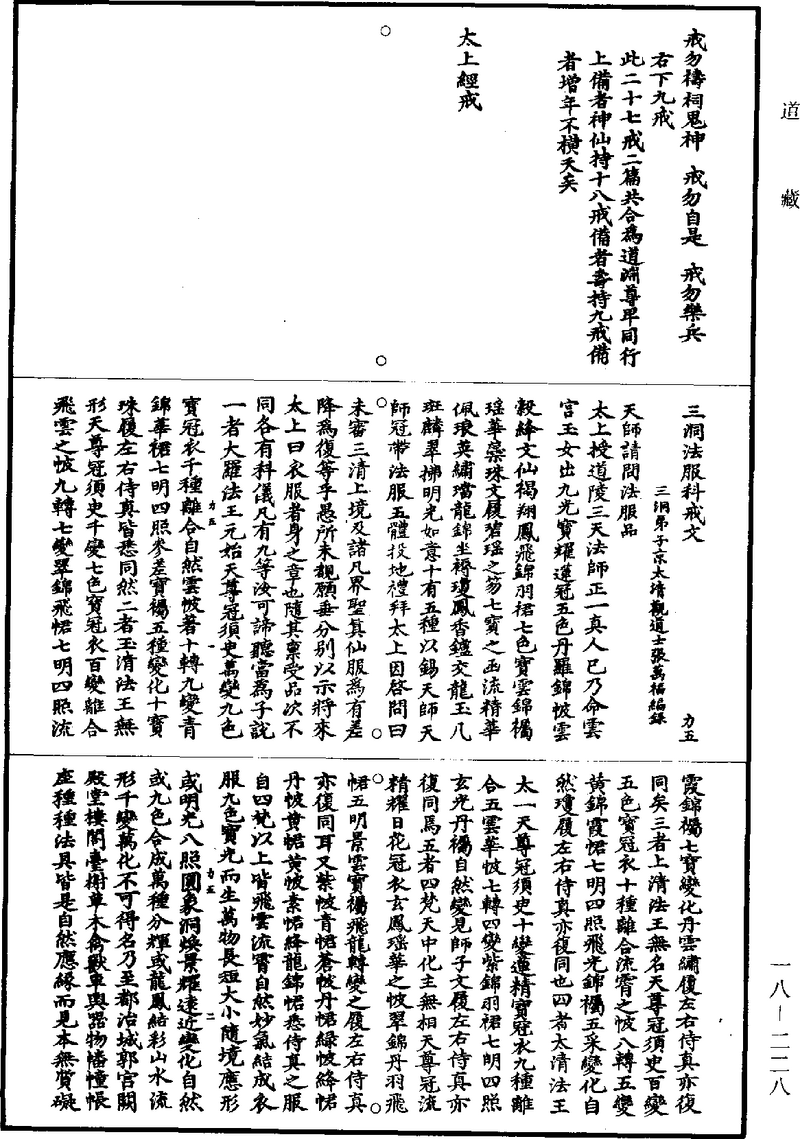 道藏
戒勿禱祠鬼神　戒勿自是　戒勿樂兵
右下九戒
此二十七戒二篇共合爲道淵尊卑同行
上備者神仙持十八戒備者壽持九戒備
者增年不橫夭矣
太上經戒
三洞法服科戒文
三洞弟子京太清觀道士張萬福編錄
力五
天師請問法服品
太上授道陵三天法師正一真人已乃命雲
宮玉女出九光寶耀蓮冠五色丹羅錦帔雲
縠絳文仙褐翔鳳飛錦羽裙七色寶雲錦襡
瑤華蘂珠文履碧瑤之笏七寶之函流精華
佩琅英繡璫龍錦坐褥瓊鳳香鑪交龍玉几
斑麟翠拂明光如意十有五種以錫天師天
師冠帶法服五體投地禮拜太上因啓問曰
未審三清上境及諸凡界聖真仙服爲有差
降爲復等乎愚所未親願垂分別以示將來
太上曰衣服者身之章也隨其稟受品次不
同各有科儀凡有九等汝可諦聽當爲子說
一者大羅法王元始天尊冠須臾萬變九色
力五　一
寶冠衣千種離合自然雲帔著十轉九變青
錦華裙七明四照參差寶襡五種變化十寶
珠履左右侍真皆悉同然二者玉清法王無
形天尊冠須臾千變七色寶冠衣百變離合
飛雲之帔九轉七變翠錦飛裙七明四照流
霞錦襡七寶變化丹雲繡履左右侍真亦復
同矣三者上清法王無名天尊冠須臾百變
五色寶冠衣十種離合流霄之帔八轉五變
黃錦霞裙七明四照飛光錦襡五采變化自
然瓊履左右侍真亦復同也四者太清法王
太一天尊冠須臾十變蓮精寶冠衣九種離
合五雲華帔七轉四變紫錦羽裙七明四照
玄光丹襡自然變見師子文履左右侍真亦
復同焉五者四梵天中化主無相天尊冠流
精耀日花冠衣玄鳳瑤華之帔翠錦丹羽飛
裙五明景雲寶襡飛龍轉變之履左右侍真
亦復同耳又紫帔青裙蒼帔丹裙綠帔絳裙
丹帔黃裙黃帔素裙絳龍錦裙悉侍真之服
自四梵以上皆飛雲流霄自然妙氣結成衣
服九色寶光而生萬物長短大小隨境應形
力五　二
或明光八照圓象洞煥景耀遠近變化自然
或九色合成萬種分輝或龍鳳結彩山水流
形千變萬化不可得名乃至都治城郭宮闕
殿堂樓閣臺榭草木禽獸車輿器物幡幢帳
座種種法具皆是自然應緣而見本無質礙
一八—二二八